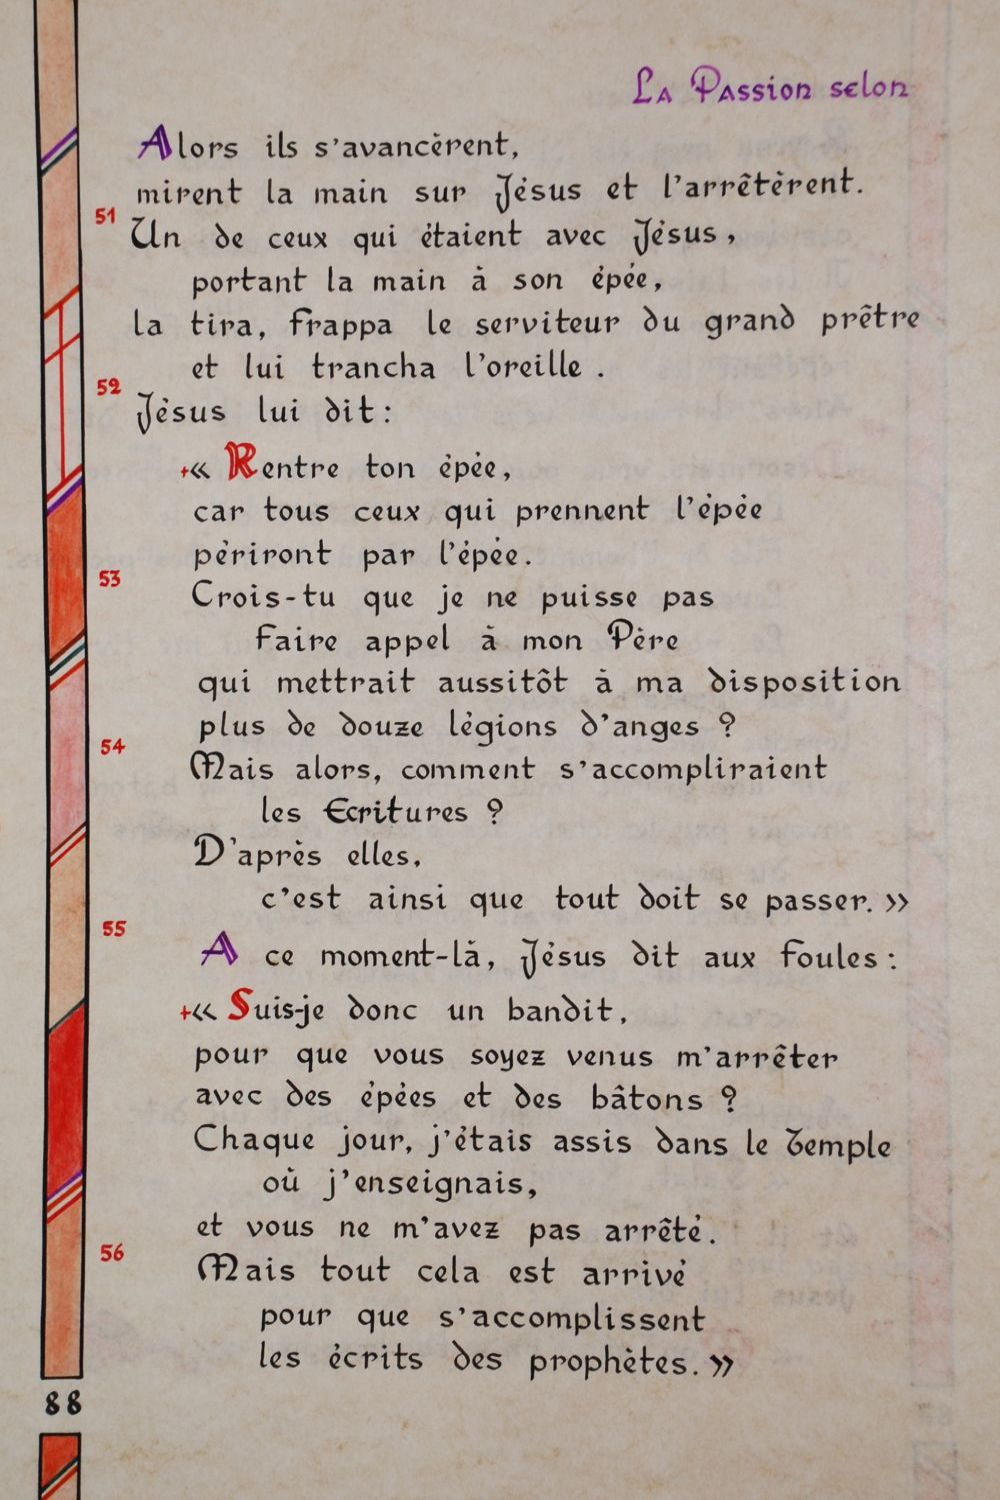 La Passion selon
Alors ils s'avancèrent,
mirent la main sur Jésus et l'arrêtèrent.
51
Un de ceux qui étaient avec Jésus,
portant la main à son épée,
la tira, frappa le serviteur du grand prêtre
et lui trancha l'oreille.
52
Jésus lui dit :
+« Rentre ton épée,
car tous ceux qui prennent l'épée
périront par l'épée.
53
Crois-tu que je ne puisse pas
faire appel à mon Père
qui mettrait aussitôt à ma disposition
plus de douze légions d'anges ?
54
Mais alors, comment s'accompliraient
les Ecritures ?
D'après elles,
c'est ainsi que tout doit se passer. »
55
A ce moment-là, Jésus dit aux foules :
+« Suis-je donc un bandit,
pour que vous soyez venus m'arrêter
avec des épées et des bâtons ?
Chaque jour, j'étais assis dans le Temple
où j'enseignais,
et vous ne m'avez pas arrêté.
56
Mais tout cela est arrivé
pour que s'accomplissent
les écrits des prophètes. »
88